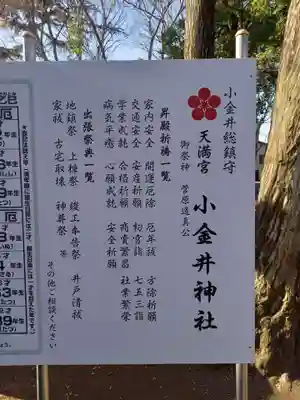 小金井総鎮守
天満宮 小金井神社
御祭神 菅原道真公
昇殿祈祷一覧
家内安全 開運厄除 厄年祓 方除祈願
交通安全 安産祈願 初宮詣 七五三詣
学業成就 合格祈願 商売繁昌 社業繁栄
病気平癒 心願成就 安全祈願
出張祭典一覧
地鎮祭 上棟祭 竣工奉告祭 井戸清祓
家祓 古宅取壊 神葬祭 等
その他ご相談ください
厄
厄